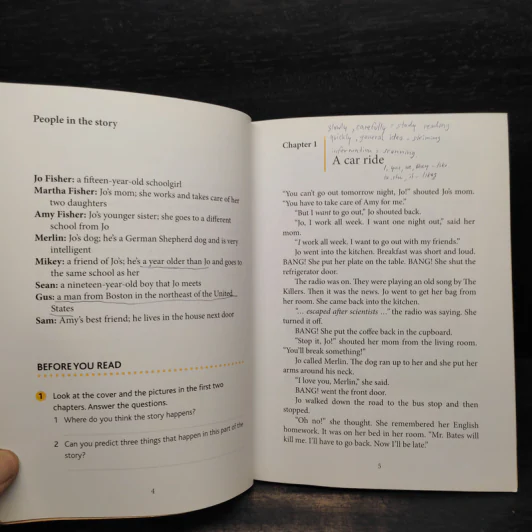 People in the story
Jo Fisher: a fifteen-year-old schoolgirl
Martha Fisher: Jo's mom; she works and takes care of her
two daughters
Amy Fisher: Jo's younger sister; she goes to a different
school from Jo
Merlin: Jo's dog; he's a German Shepherd dog and is very
intelligent
Mikey: a friend of Jo's; he's a year older than Jo and goes to
the same school as her
Sean: a nineteen-year-old boy that Jo meets
Gus: a man from Boston in the northeast of the United
States
Sam: Amy's best friend; he lives in the house next door
BEFORE YOU READ
1 Look at the cover and the pictures in the first two
chapters. Answer the questions.
1 Where do you think the story happens?
2 Can you predict three things that happen in this part of the
story?
4
slowly, carefully - study reading
quickly, general idea - skimming
information - scanning
Chapter 1
A car ride
"You can't go out tomorrow night, Jo!" shouted Jo's mom.
"You have to take care of Amy for me."
"But I want to go out," Jo shouted back.
"Jo, I work all week. I want one night out," said her
mom.
"I work all week. I want to go out with my friends."
Jo went into the kitchen. Breakfast was short and loud.
BANG! She put her plate on the table. BANG! She shut the
refrigerator door.
The radio was on. They were playing an old song by The
Killers. Then it was the news. Jo went to get her bag from
her room. She came back into the kitchen.
"... escaped after scientists ..." the radio was saying. She
turned it off.
BANG! She put the coffee back in the cupboard.
"Stop it, Jo!" shouted her mom from the living room.
"You'll break something!"
Jo called Merlin. The dog ran up to her and she put her
arms around his neck.
"I love you, Merlin," she said.
BANG! went the front door.
Jo walked down the road to the bus stop and then
stopped.
"Oh no!" she thought. She remembered her English
homework. It was on her bed in her room. "Mr. Bates will
kill me. I'll have to go back. Now I'll be late."
5